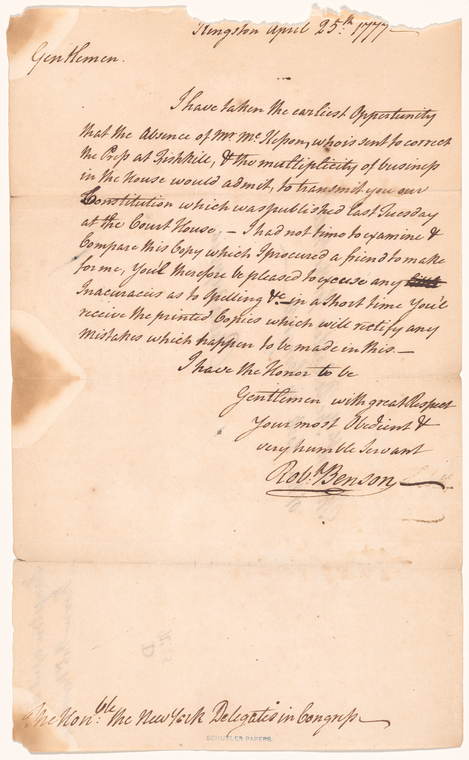 Kingston April 25th. 1777 —
Gentlemen.
I have taken the earliest Opportunity
that the absence of Mr. McKesson, who is sent to correct
the Press at Fishkill, & the multiplicity of business
in the House would admit, to transmit you our
Constitution which was published last Tuesday
at the Court House. — I had not time to examine &
Compare this Copy which I procured a friend to make
for me, You'l therefore be pleased to excuse any
Inacuracies as to Spelling &c — in a short time You'l
receive the printed Copies which will rectify any
Mistakes which happen to be made in this —
I have the Honor to be
Gentlemen with great Respect
Your most Obedient &
very humble Servant
Robt. Benson
The Honble. The New York Delegates in Congress —
SCHUYLER PAPERS